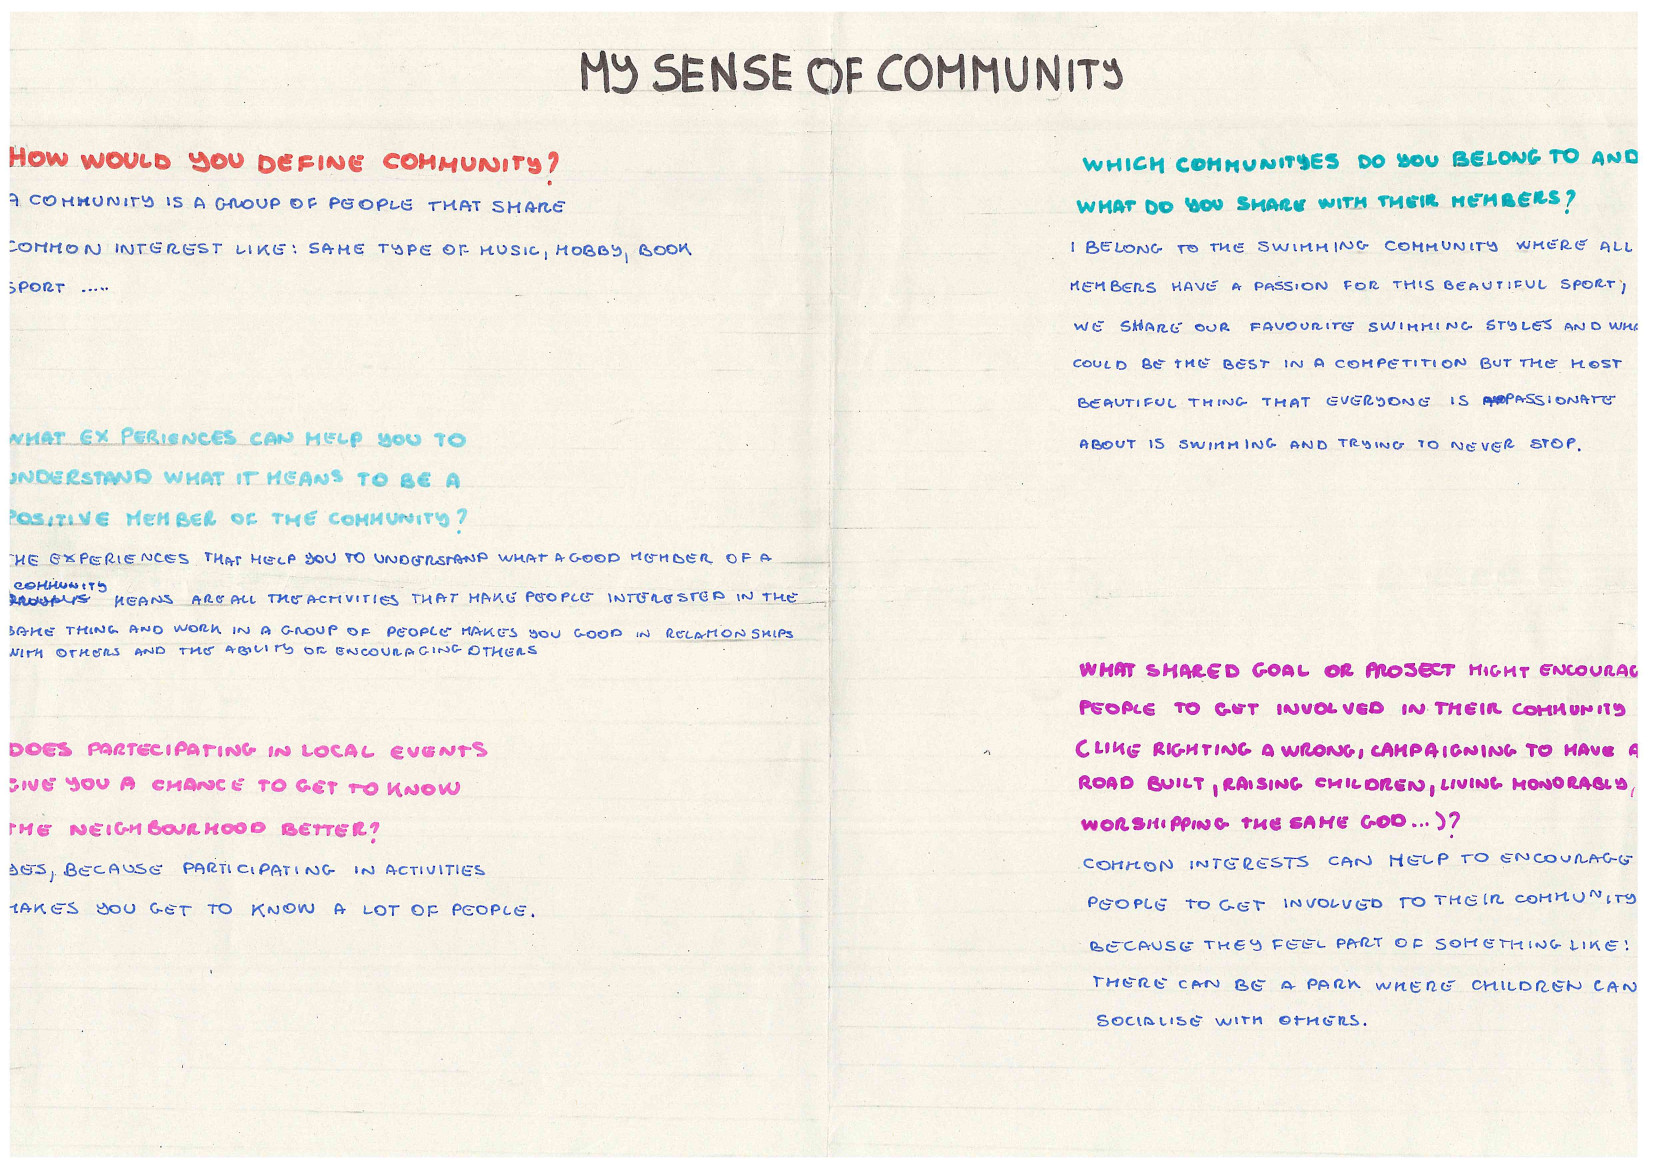 MY SENSE OF COMMUNITY
HOW WOULD YOU DEFINE COMMUNITY?
A COMMUNITY IS A GROUP OF PEOPLE THAT SHARE
COMMON INTEREST LIKE: SAME TYPE OF MUSIC, HOBBY, BOOK
SPORT .....
WHAT EXPERIENCES CAN HELP YOU TO
UNDERSTAND WHAT IT MEANS TO BE A
POSITIVE MEMBER OF THE COMMUNITY?
THE EXPERIENCES THAT HELP YOU TO UNDERSTAND WHAT A GOOD MEMBER OF A
COMMUNITY
MEANS ARE ALL THE ACTIVITIES THAT MAKE PEOPLE INTERESTED IN THE
SAME THING AND WORK IN A GROUP OF PEOPLE MAKES YOU GOOD IN RELATIONSHIPS
WITH OTHERS AND THE ABILITY OF ENCOURAGING OTHERS
DOES PARTECIPATING IN LOCAL EVENTS
GIVE YOU A CHANCE TO GET TO KNOW
THE NEIGHBOURHOOD BETTER?
YES, BECAUSE PARTICIPATING IN ACTIVITIES
MAKES YOU GET TO KNOW A LOT OF PEOPLE.
WHICH COMMUNITYES DO YOU BELONG TO AND
WHAT DO YOU SHARE WITH THEIR MEMBERS?
I BELONG TO THE SWIMMING COMMUNITY WHERE ALL
MEMBERS HAVE A PASSION FOR THIS BEAUTIFUL SPORT,
WE SHARE OUR FAVOURITE SWIMMING STYLES AND
COULD BE THE BEST IN A COMPETITION BUT THE MOST
BEAUTIFUL THING THAT EVERYONE IS PASSIONATE
ABOUT IS SWIMMING AND TRYING TO NEVER STOP.
WHAT SHARED GOAL OR PROJECT MIGHT ENCOURAG
PEOPLE TO GET INVOLVED IN THEIR COMMUNITY
(LIKE RIGHTING A WRONG, CAMPAIGNING TO HAVE A
ROAD BUILT, RAISING CHILDREN, LIVING HONORABLY,
WORSHIPPING THE SAME GOD...)?
COMMON INTERESTS CAN HELP TO ENCOURAGE
PEOPLE TO GET INVOLVED TO THEIR COMMUNITY
BECAUSE THEY FEEL PART OF SOMETHING LIKE:
THERE CAN BE A PARK WHERE CHILDREN CAN
SOCIALISE WITH OTHERS.